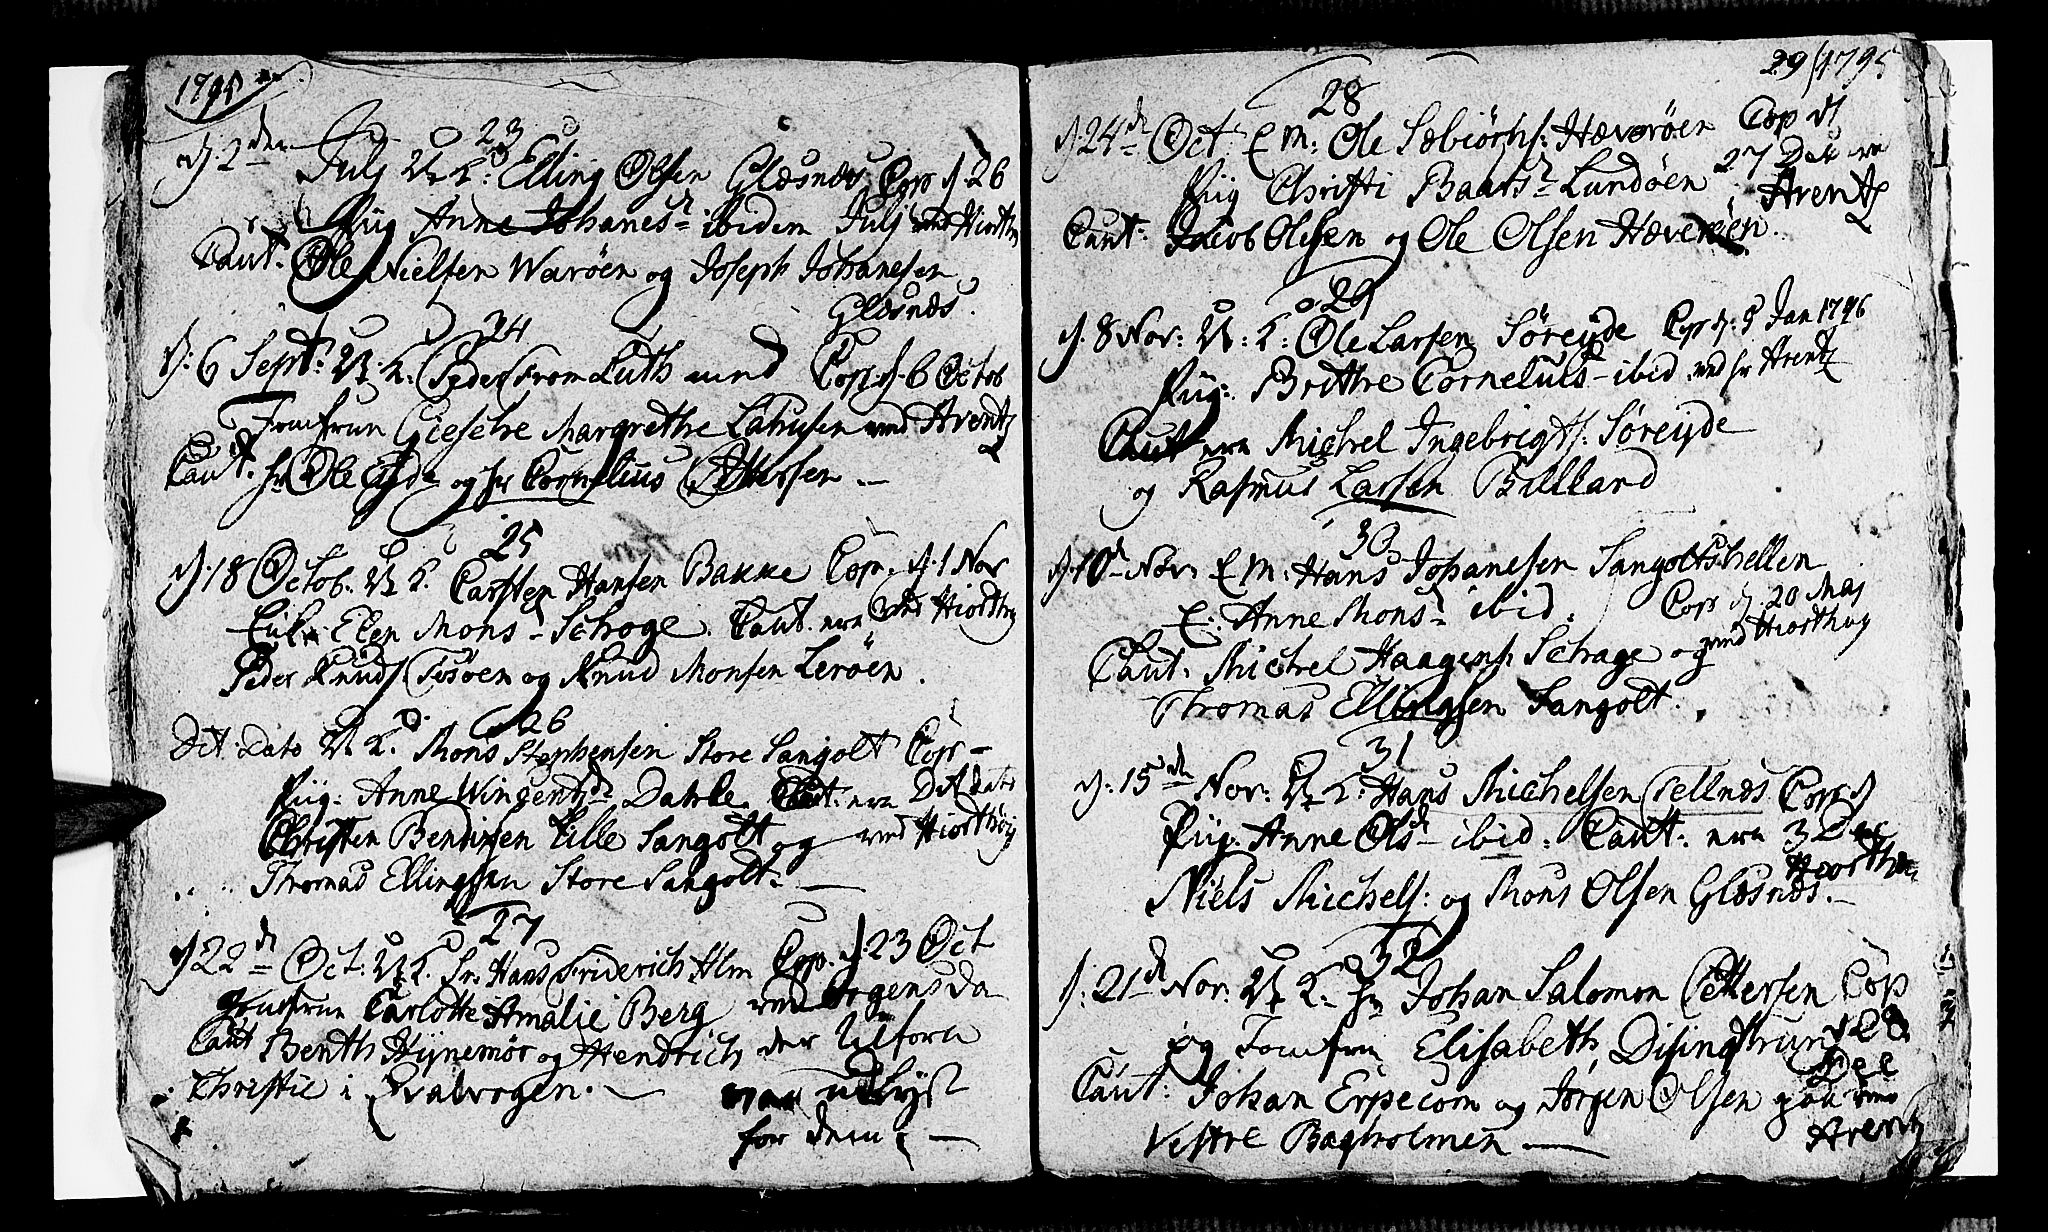 1795
23
d. 2den Julj U. K. Elling Olsen Glæsnæs Cop d. 26
Piig Anne Johanesdr ibidem Julj ved Hiorth
Caut. Ole Nielsen Warøen og Joseph Johanesen
Glæsnæs.
24
d. 6 Sept. U. K. Peder From Luth med Cop. d. 6 Octob
Jomfrun Giesche Margrethe Lahusen ved Arentz
Caut. hr Ole Eyde og hr Cornelius
25
d. 18 Octob. U. K. Carsten Hansen Bakke Cop. d. 1 Nov
Enke Elen Monsd Schoge. Caut. ere ved Hiorthøy
Peder Knuds. Tøsøen og Knud Monsen Lerøen.
26
Dit. Dato U. K. Mons Stephensen Store Sangolt Cop
Piig. Anne Wingentzd Dahle. Caut. ere Dit Dato
Christen Bendixen Lille Sangolt og ved Hiorthøy
Thomas Ellingsen Store Sangolt.
27
d 22de Oct. U. K. Sr. Hans Friderich Alm Cop. d. 23 Oct
Jomfrun Carlotte Amalie Berg ved Jørgens Da
Caut Benth Hynemør og Hendrich der tilforn
Christie i Qvalvogen. var udlyst
for dem.
29 / 1795
28
d. 24de Oct. E M: Ole Sæbiörns: Hæverøen Cop d
Pig Christi Baarsdr Lundøen 27 Dec ved
Arentz
Caut: Jacob Olesen og Ole Olsen Hæverøen.
29
d. 8 Nov: U: K: Ole Larsen Søreyde Cop d. 5 Jan 1796
Piig: Brithe Cornelius ibid ved hr Arentz
Caut ere Michel Ingebrigts. Søreyde
og Rasmus Larsen Billand
30
d. 10de Nov. E M: Hans Johanesen Sangoltshellen
E: Anne Monsd ibid. Cop d. 20 Maj
Caut: Michel Haagens. Schage og ved Hiorthøy
Thomas Ellingsen Sangolt.
31
d. 15de Nov: U. K: Hans Michelsen Tellnæs Cop d
Piig. Anne Olsd ibid: Caut: ere 3 Dec
Hiorthøy
Niels Michels: og Mons Olsen Glæsnæs.
32
d. 21de Nov: U. K. hr Johan Salomon Pettersen Cop
og Jomfru Elisabeth Disingtrun d 28
Dec
Caut: Johan Erpecom og Jørgen Olsen paa ved
Vestre Bagholmen Arentz